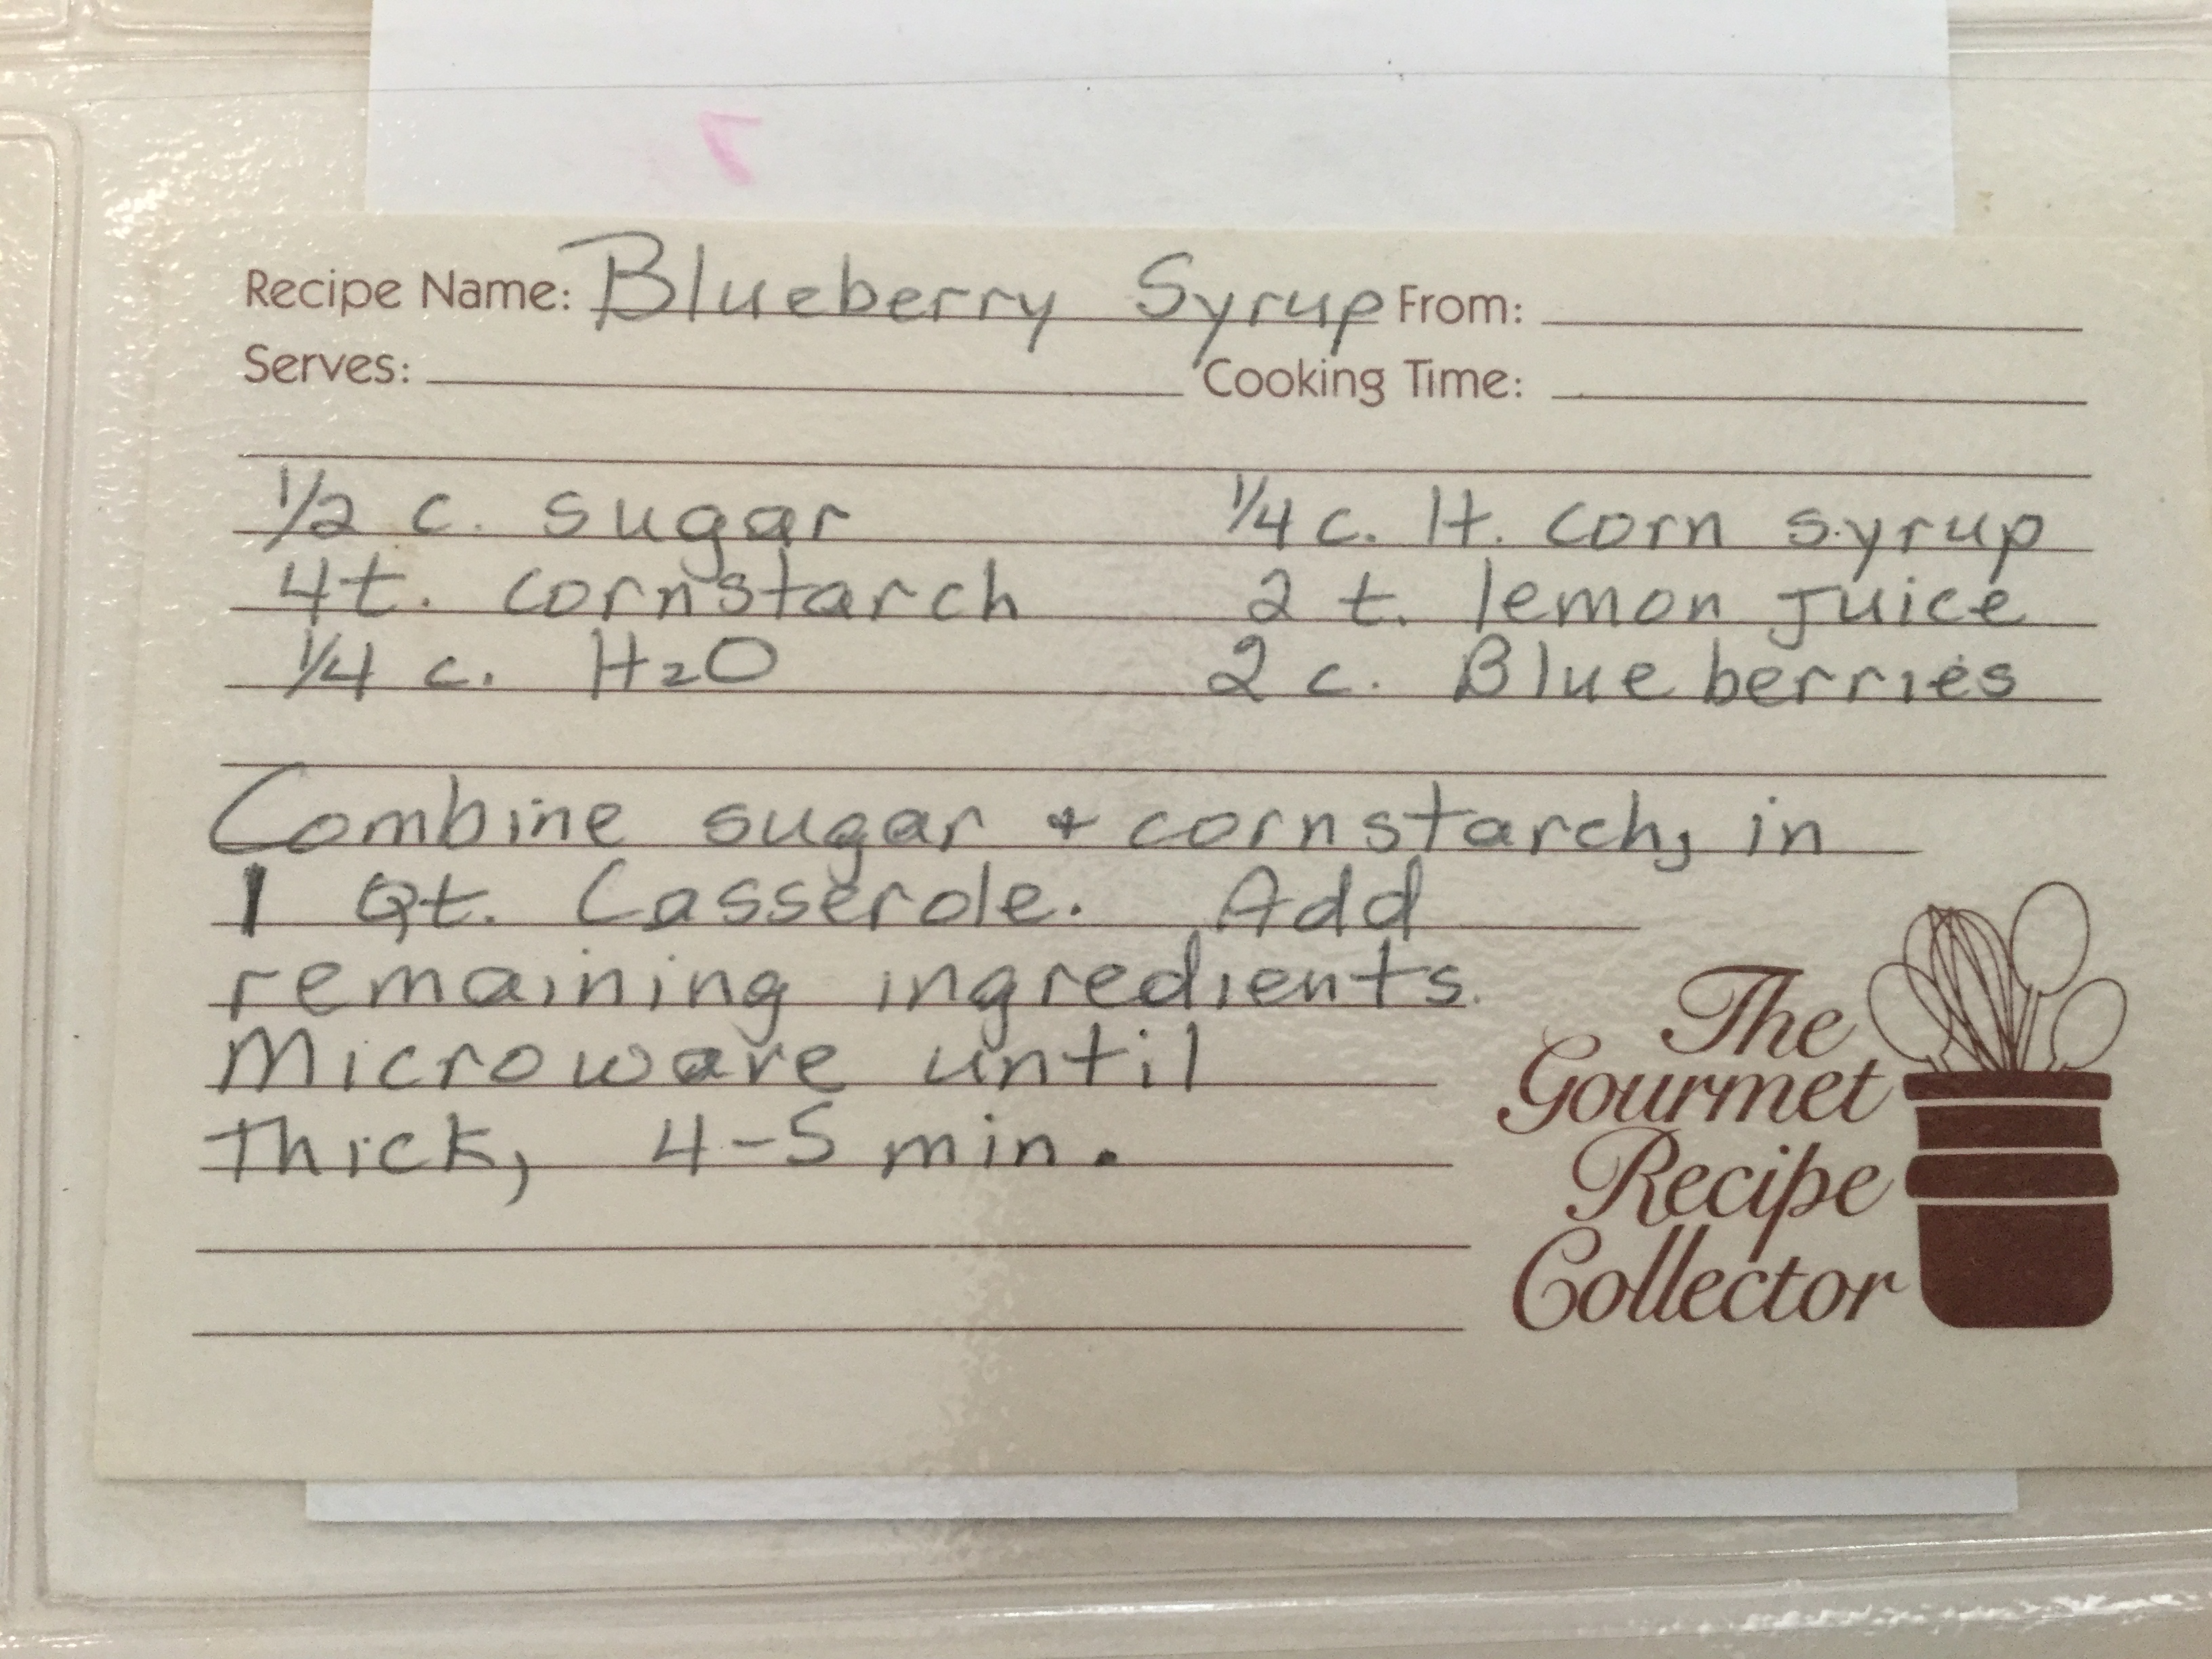 Recipe Name: Blueberry Syrup From:
Serves: Cooking Time:
1/2 c. sugar 1/4 c. lt. corn syrup
4t. cornstarch 2 t. lemon juice
1/4 c. H2O 2 c. Blueberries
Combine sugar + cornstarch, in
1 Qt. Casserole. Add
remaining ingredients.
Microwave until
Thick, 4-5 min.
The
Gourmet
Recipe
Collector